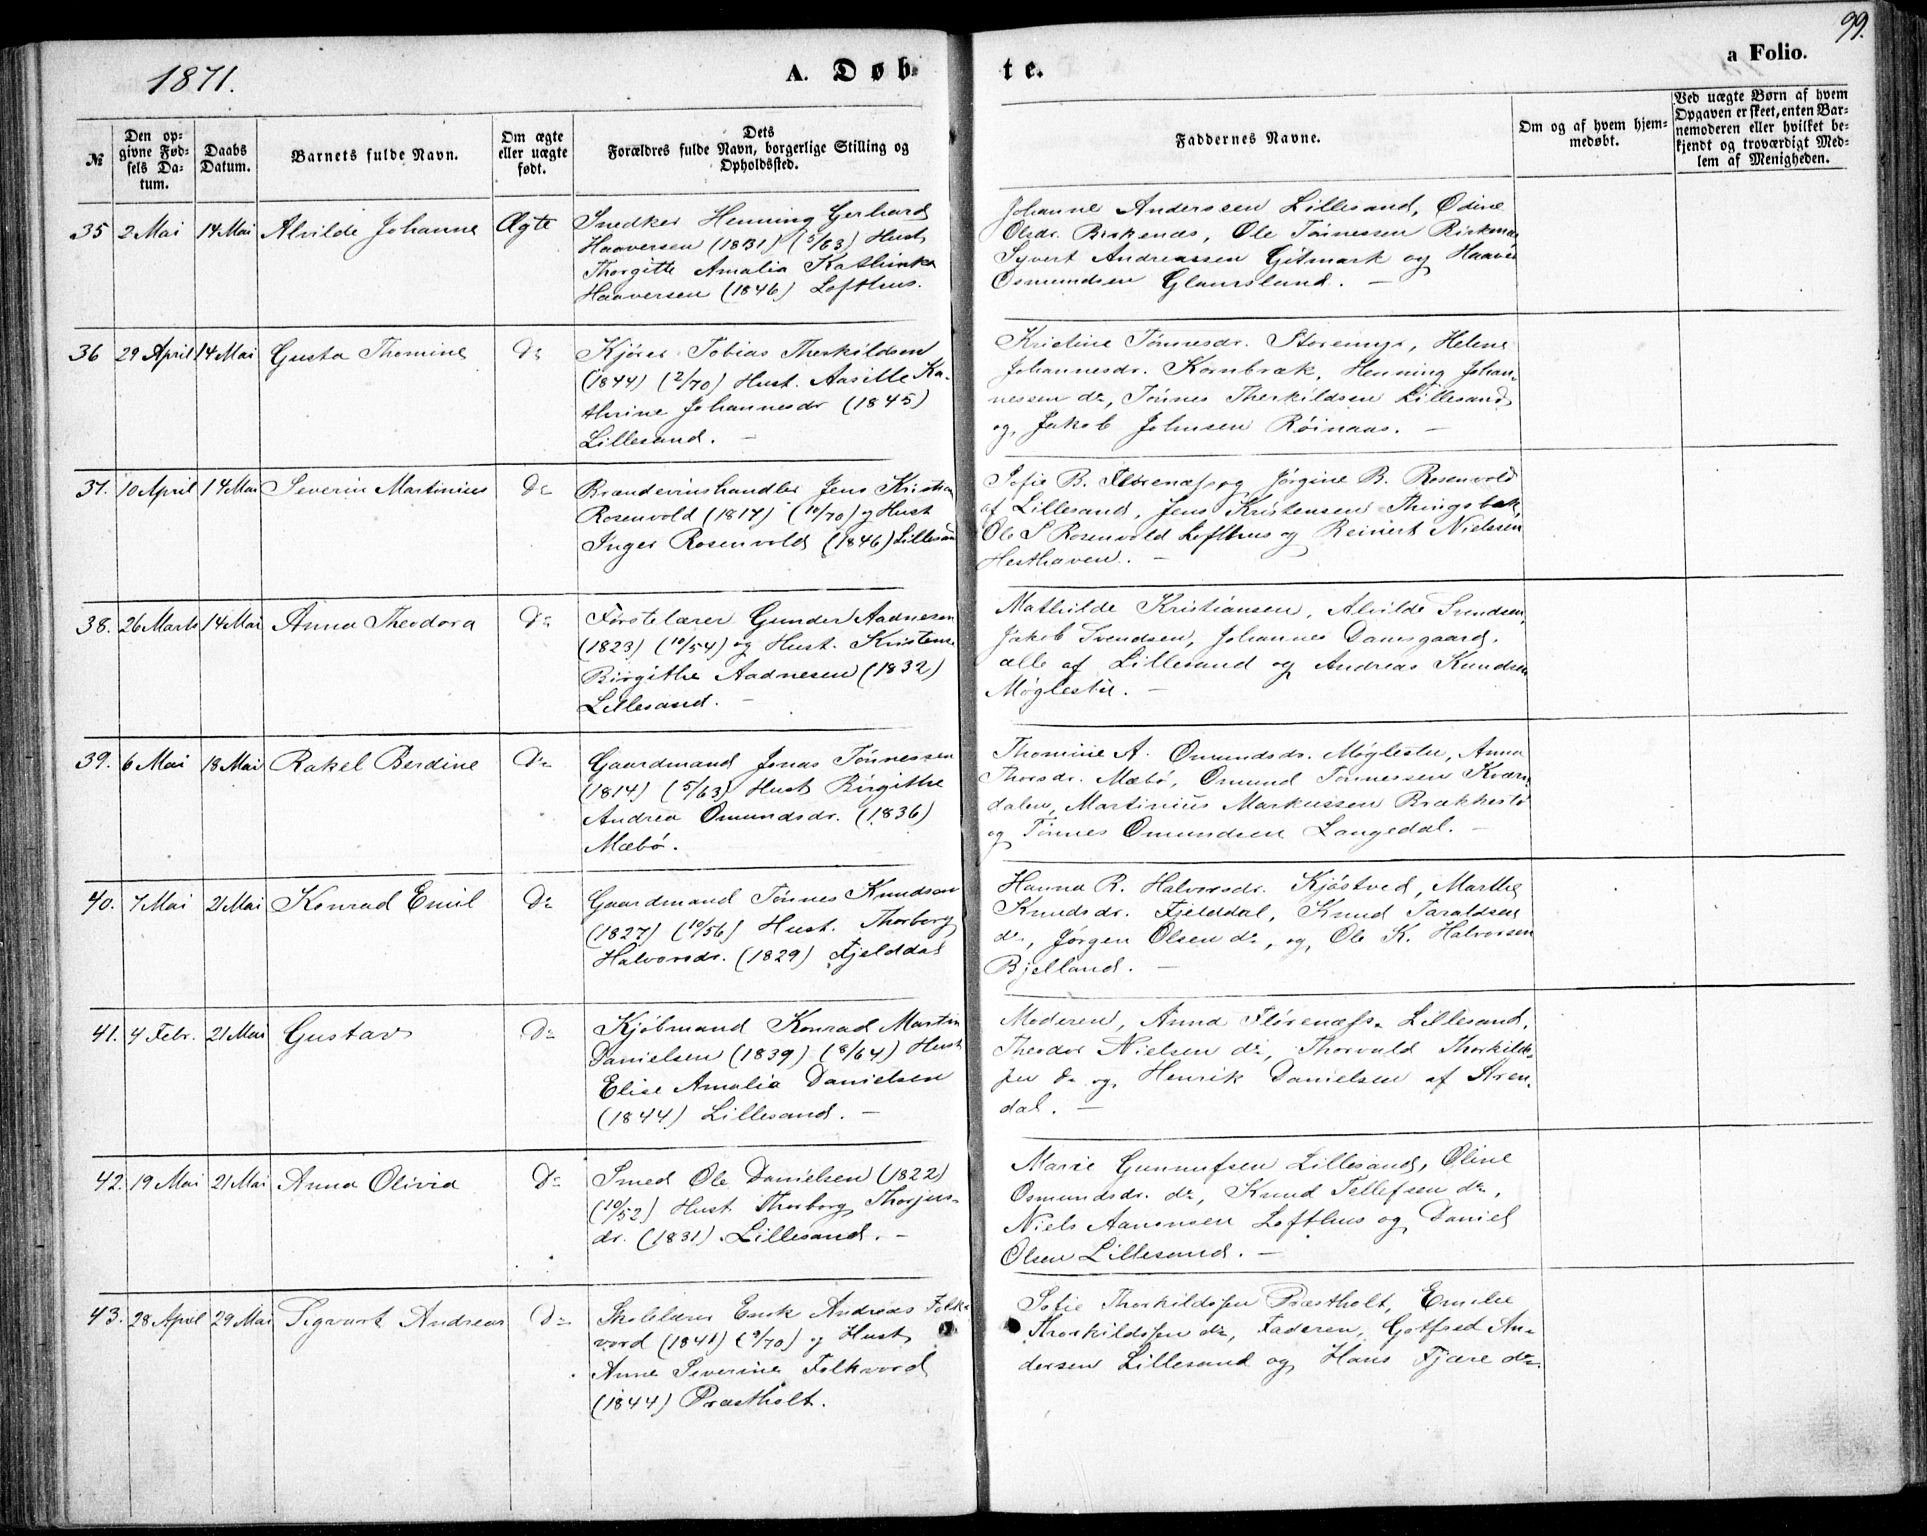 99.
1871.
A. Døb-
te.
a Folio.
№
Den op-
givne Fød-
sels Da-
tum.
Daabs
Datum.
Barnets fulde Navn.
Om ægte
eller uægte
født.
Dets
Forældres fulde Navn, borgerlige Stilling og
Opholdssted.
Faddernes Navne.
Om og af hvem hjem-
medøbt.
Ved uægte Børn af hvem
Opgaven er skeet, enten Bar-
nemoderen eller hvilket be-
kjendt og troværdigt Med-
lem af Menigheden.
35 2 Mai 14 Mai Alvilde Johanne Ægte
Snedker Henning Gerhard
Haaversen (1831) (5/63) Hust
Thorgitte Amalia Kathinka
Haaversen (1846) Lofthus.
Johanne Anderssen Lillesand, Odine
Olsdr. Birkenes, Ole Tønnessen Birkenes
Syvert Andreassen Gitmark og Haaver
Osmundsen Glamsland. —
36 29 April 14 Mai Gusta Thomine Do
Kjører Tobias Therkildsen
(1844) (2/70) Hust. Aasille Ka-
thrine Johannesdr (1845)
Lillesand. —
Kristine Tønnesdr. Storemyr, Helene
Johannesdr. Kornbræk, Henning Johan-
nessen do, Tønnes Therkildsen Lillesand
og Jakob Johnsen Røinaas. —
37. 10 April 14 Mai Severin Martinius Do
Brændevinshandler Jens Kristian
Rosenvold (1817) (10/70) og Hust
Inger Rosenvold (1846) Lillesand
Sofie B. Flørenæss og Jørgine B. Rosenvold
af Lillesand, Jens Kristensen Thingsbak,
Ole S Rosenvold Lofthus og Reinert Nielsen
Hesthaven. —
38. 26 Marts 14 Mai Anna Theodora Do
Førstelærer Gunder Aadnesen
(1823) (10/54) og Hust. Kristense
Birgithe Aadnesen (1832)
Lillesand. —
Mathilde Kristiansen, Alvilde Svendsen,
Jakob Svendsen, Johannes Danesgaard,
alle af Lillesand og Andreas Knudsen
Møglestu. —
39. 6 Mai 18 Mai Rakel Berdine Do
Gaardmand Jonas Tønnessen
(1814) (5/63) Hust Birgithe
Andrea Omundsdr. (1836)
Mæbø.
Thomine A. Omundsdr. Møglestu, Anna
Thorsdr. Mæbø, Omund Tønnessen Kværn-
dalen, Martinius Markussen Brækkestø
og Tønnes Omundsen Langedal. —
40. 7 Mai 21 Mai Konrad Emil Do
Gaardmand Tønnes Knudsen
(1827) (10/56) Hust. Thorborg
Halvorsdr. (1829) Fjelddal
Hanna R. Halvorsdr. Kjøstved, Marthe
Knudsdr. Fjelddal, Knud Taraldsen
do, Jørgen Olsen do, og Ole K. Halvorsen
Bjelland. —
41. 4 Febr. 21 Mai Gustav Do
Kjøbmand Konrad Martin
Danielsen (1839) (8/64) Hust
Elise Amalia Danielsen
(1844) Lillesand. —
Moderen, Anna Flørenæss Lillesand,
Theodor Nielsen do, Thorvald Thorkilds-
sen do og Henrik Danielsen af Aren-
dal. —
42. 19 Mai 21 Mai Anna Olivia Do
Smed Ole Danielsen (1822)
(10/52) Hust Thorborg Thorjus-
dr. (1831) Lillesand. —
Marie Gunnufsen Lillesand, Oline
Osmundsdr. do, Knud Tellefsen do,
Niels Aanonsen Lofthus og Daniel
Olsen Lillesand. —
43. 28 April 29 Mai Sigvart Andreas Do
Skolelærer Enok Andreas Folk-
vord (1841) (9/70) og Hust
Anne Severine Folkvord
(1844) Præstholt.
Sofie Thorkildssen Præstholt, Emilie
Thorkildssen do, Faderen, Gotfred An-
dersen Lillesand og Hans Fjære do.